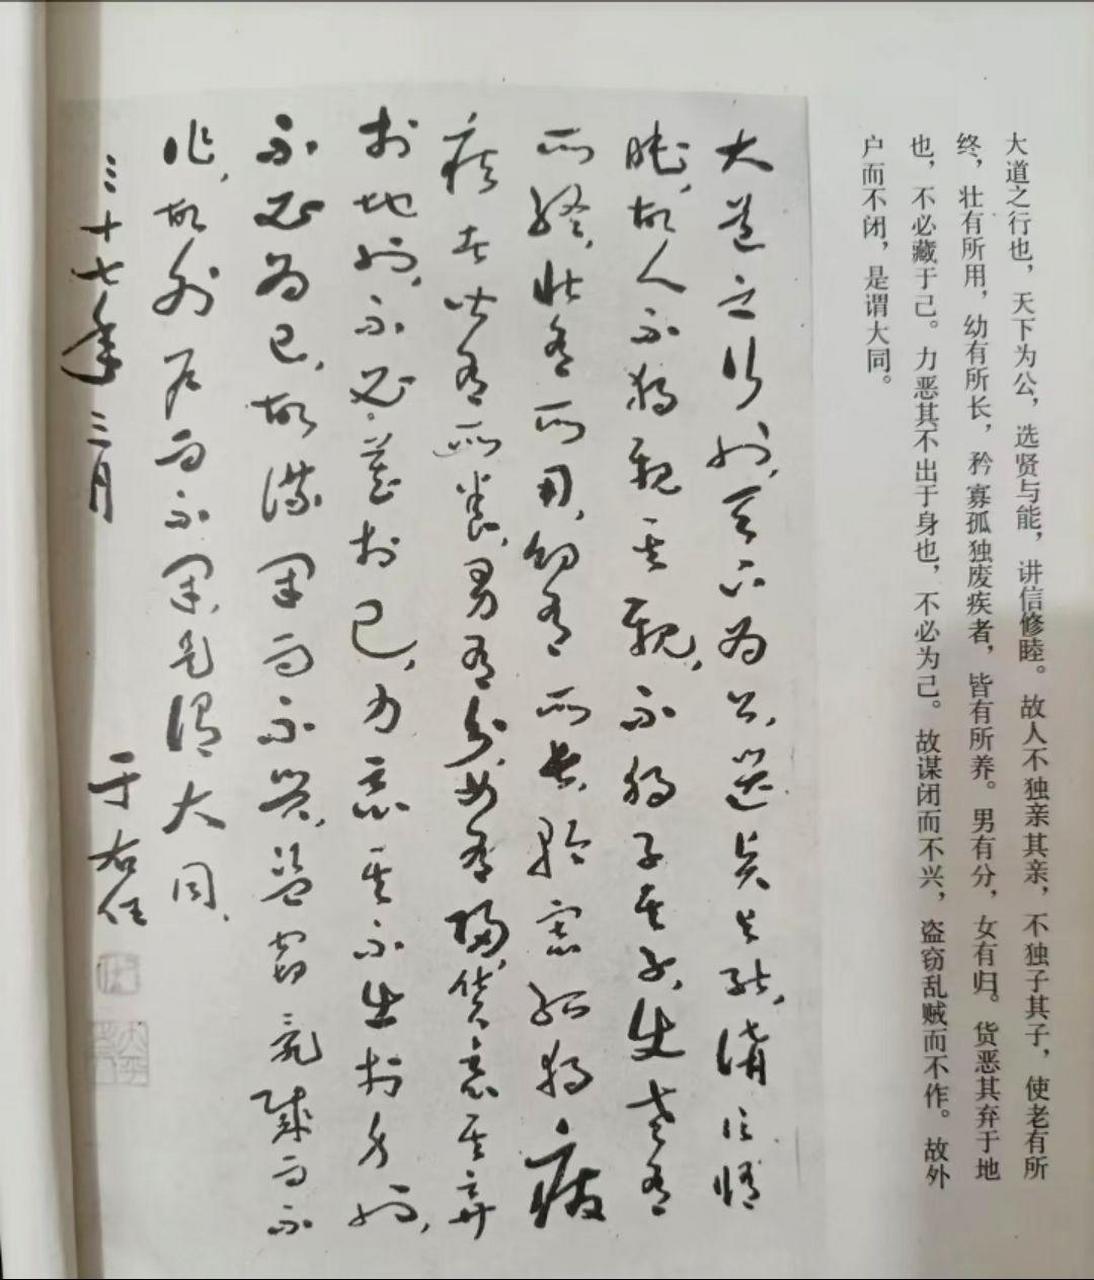 大道之行也，天下为公，选贤与能，讲信修睦。故人不独亲其亲，不独子其子，使老有所
终，壮有所用，幼有所长，矜寡孤独废疾者，皆有所养。男有分，女有归。货恶其弃于地
也，不必藏于己。力恶其不出于身也，不必为己。故谋闭而不兴，盗窃乱贼而不作。故外
户而不闭，是谓大同。
大道之行也，天下为公，选贤与能，讲信修
睦，故人不独亲其亲，不独子其子，使老有
所终，壮有所用，幼有所长，矜寡孤独废
疾者皆有所养，男有分，女有归，货恶其弃
于地也，不必藏于己，力恶其不出于身也，
不必为己，故谋闭而不兴，盗窃乱贼而不
作，故外户而不闭，是谓大同，
三十七年三月 于右任